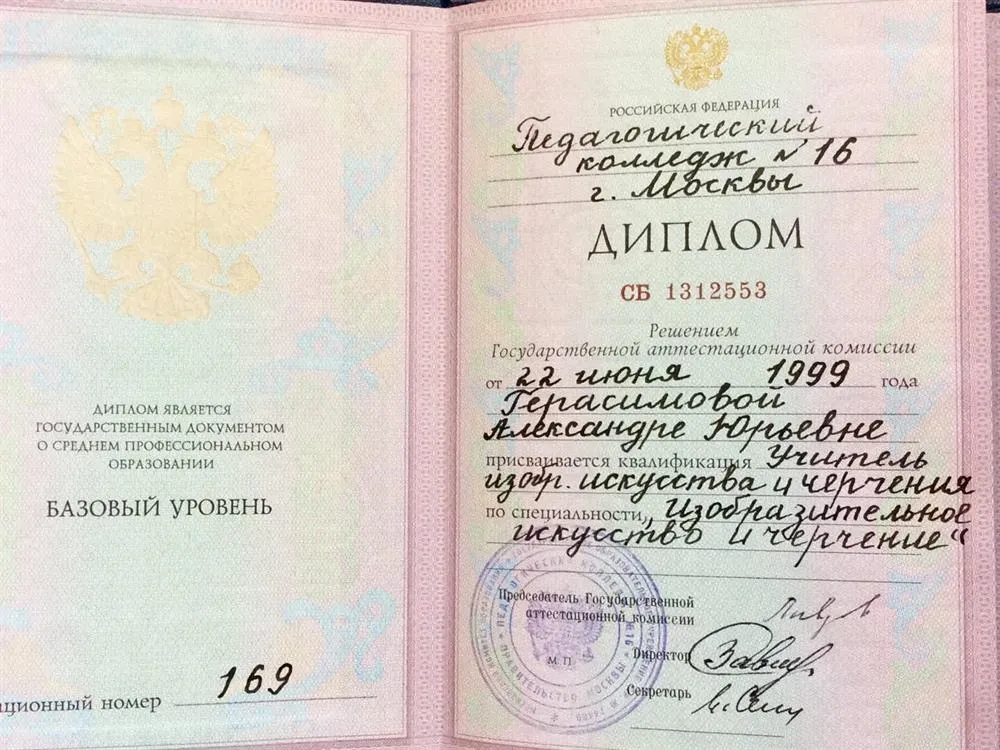 ДИПЛОМ ЯВЛЯЕТСЯ
ГОСУДАРСТВЕННЫМ ДОКУМЕНТОМ
О СРЕДНЕМ ПРОФЕССИОНАЛЬНОМ
ОБРАЗОВАНИИ
БАЗОВЫЙ УРОВЕНЬ
ационный номер 169
РОССИЙСКАЯ ФЕДЕРАЦИЯ
Педагогический
колледж № 16
г. Москвы
ДИПЛОМ
СБ 1312553
Решением
Государственной аттестационной комиссии
от 22 июня 1999 года
Герасимовой
Александре Юрьевне
присваивается квалификация Учитель
изобр. искусства и черчения
по специальности „Изобразительное
искусство и черчение“
Председатель Государственной
аттестационной комиссии
М. П.
Директор
Секретарь